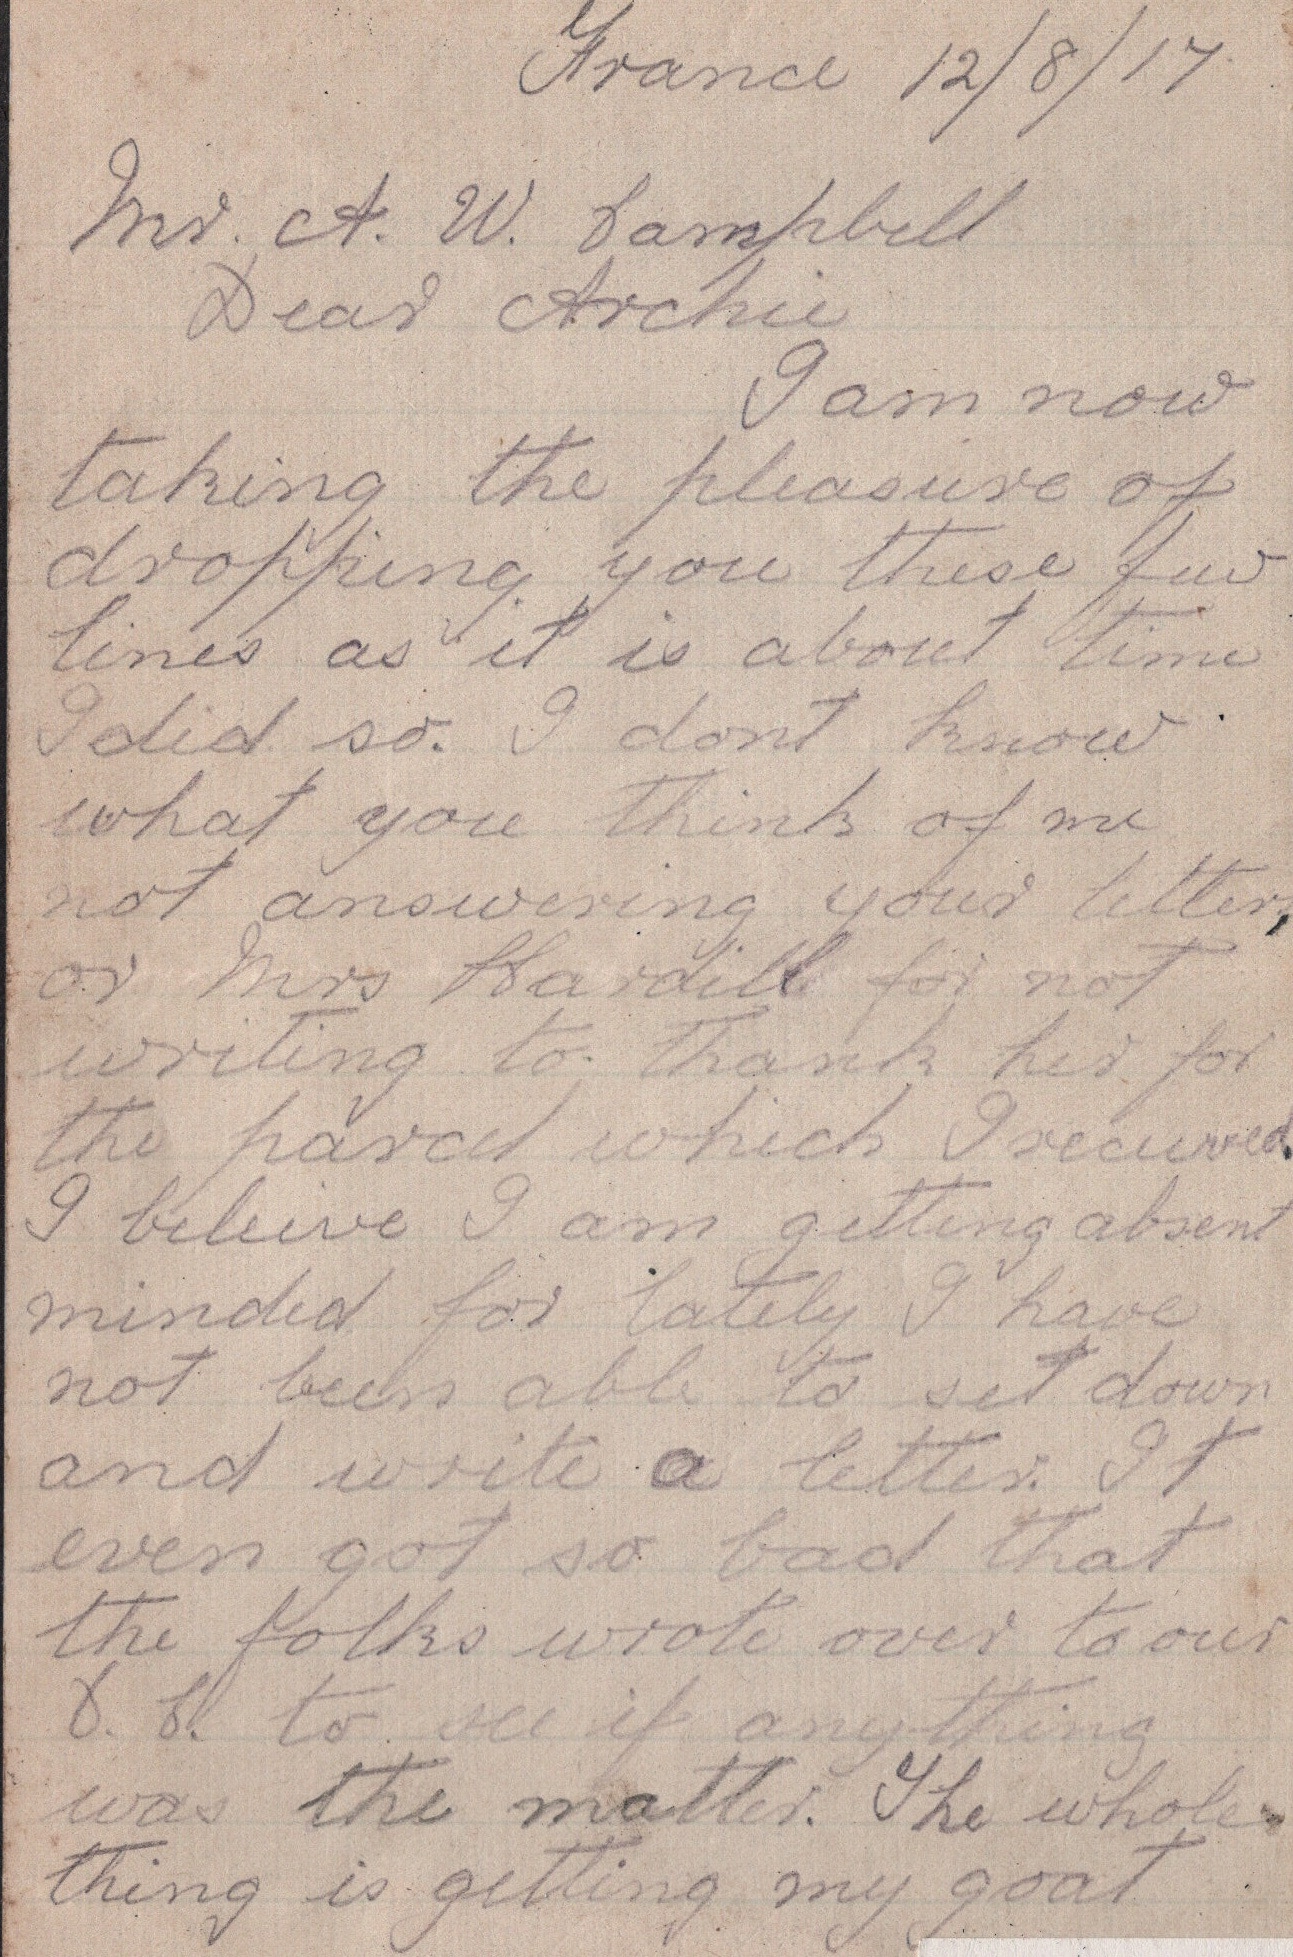 France 12/8/17.
Mr. A. W. Campbell
Dear Archie
I am now
taking the pleasure of
dropping you these few
lines as it is about time
I did so. I dont know
what you think of me
not answering your letter,
or Mrs Hardill for not
writing to thank her for
the parcel which I received.
I beleive I am getting absent
minded for lately I have
not been able to set down
and write a letter. It
even got so bad that
the folks wrote over to our
O. C. to see if anything
was the matter. The whole
thing is getting my goat